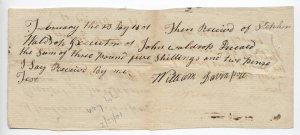 January the 23 Day 1801 Then Received of Stephen
Waldrop Executor of John Waldrop Deceasd
the Sum of three pound five Shillings and two pence
I Say Received by me
Test William